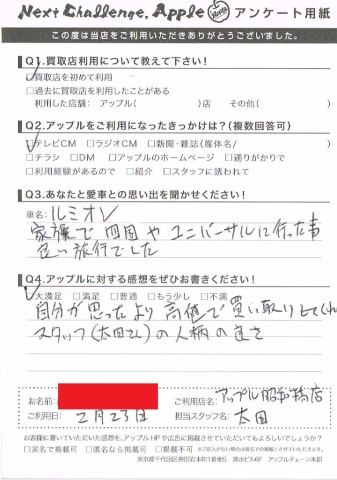 Next Challenge. Apple アンケート用紙
この度は当店をご利用いただきありがとうございました。
Q1.買取店利用について教えて下さい!
□買取店を初めて利用
□過去に買取店を利用したことがある
利用した店舗: アップル( )店 その他( )
Q2.アップルをご利用になったきっかけは?(複数回答可)
□テレビCM □ラジオCM □新聞・雑誌(媒体名/ )
□チラシ □DM □アップルのホームページ □通りがかりで
□利用経験があるので □紹介 □スタッフに誘われて
Q3.あなたと愛車との思い出を聞かせください!
車名: ルミオン
家族で四国やユニバーサルに行った事
良い旅行でした
Q4.アップルに対する感想をぜひお書きください!
□大満足 □満足 □普通 □もう少し □不満
自分が思ったより高値で買い取りしてくれ
スタッフ(太田さん)の人柄の良さ
お名前:
ご利用店名: アップル昭和橋店
ご利用日: 2月23日
担当スタッフ名: 太田
お客様に書いていただいた感想を、アップルHPや広告に掲載させていただいてもよろしいでしょうか?
□実名で掲載可 □匿名なら掲載可 □掲載不可 ※ご記入がない場合は匿名での掲載とさせていただきます。
東京都千代田区神田岩本町1番地5 清水ビル6F アップルチェーン本部